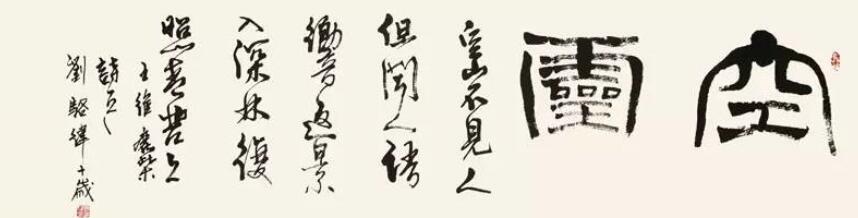 空靈
空山不見人
但聞人語
響返景
入深林復
照青苔上
王維鹿柴
詩
劉駱緯十歲